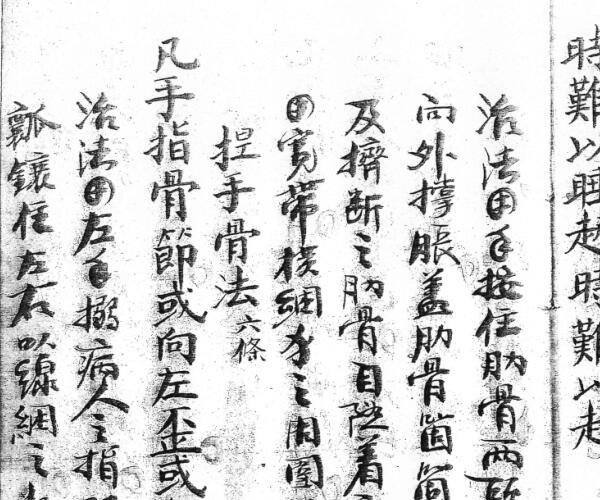 時難以睡起時難以起
治法用手按住肋骨兩
向外撑脹盖肋骨箇箇
及擠断之肋骨自陞着
用寛帶挨綑身之周圍
捏手骨法六條
凡手指骨節或向左歪或
治法用左手搦病人之指
瓢鑲住左右以線綑之